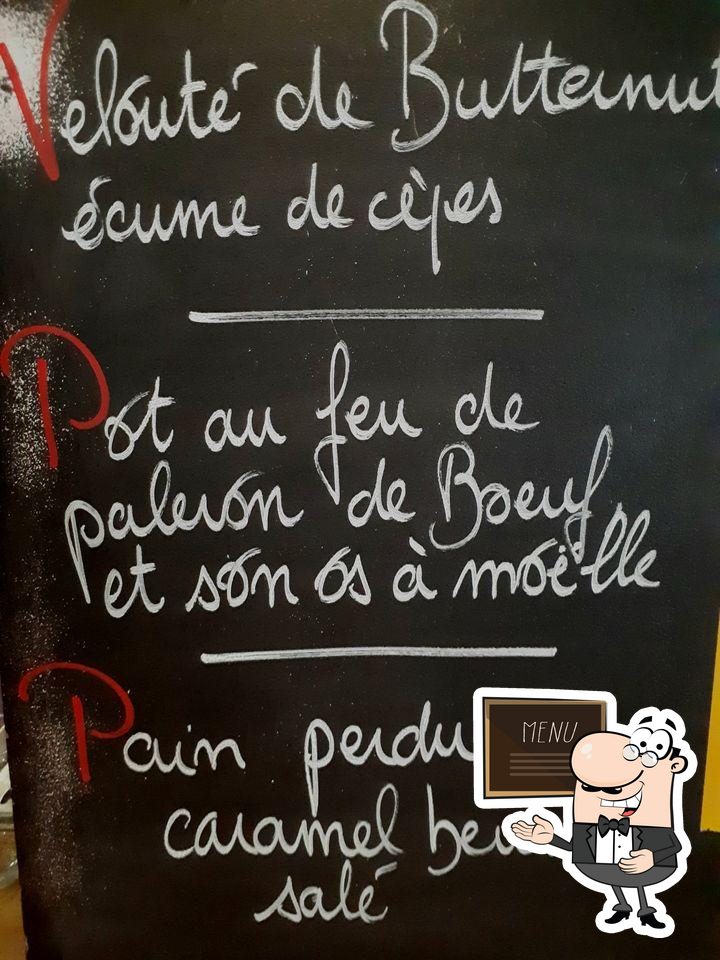 Velouté de Butternut
écume de cèpes
Pot au feu de
paleron de Boeuf
et son os à moëlle
Pain perdu
caramel
salé
MENU